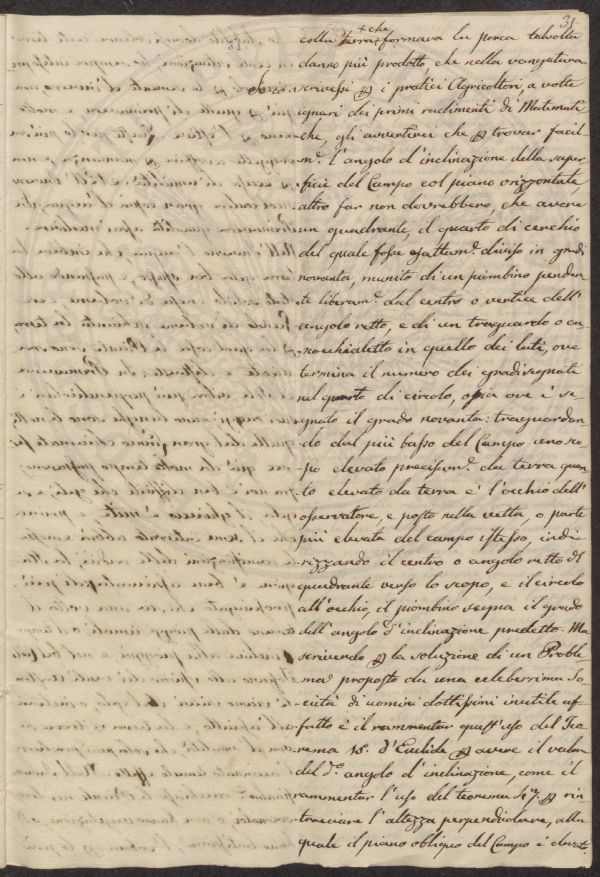 31
colla terra + che formava la porca talvolta
danno più prodotto, che nella vangatura
scrivessi p i pratici Agricoltori, a volte
ignari dei primi rudimenti di Matemati
che, gli avvertirei che p trovar facil
m.e l'angolo d'inclinazione della super
ficie del Campo col piano orizzontale
altro far non dovrebbero, che avere
un quadrante, il quarto di cerchio
del quale fosse esattam.e diviso in gradi
novanta, munito di un piombino penden
te liberam.e dal centro o vertice dell'
angolo retto, e di un traguardo o ca
nocchialetto in quello dei lati, ove
termina il numero dei gradi segnati
nel quarto di circolo, ossia ove è se
gnato il grado novanta: traguardan
do dal più basso del Campo uno sco
po elevato precisam.e da terra quan
to elevato da terra è l'occhio dell'
osservatore, e posto nella vetta, o parte
più elevata del campo istesso, indi
rizzando il centro o angolo retto del
quadrante verso lo scopo, e il circolo
all'occhio, il piombino segna il grado
dell'angolo d'inclinazione predetto. Ma
scrivendo p la soluzione di un Proble
ma proposto da una celeberrima so
cietà di uomini dottissimi inutile af
fatto è il rammentar quest'uso del Teo
rema 15. d'Euclide p avere il valor
del d.o angolo d'inclinazione, come il
rammentar l'uso del teorema p rin
tracciare l'altezza perpendicolare, alla
quale il piano obliquo del Campo è elevato